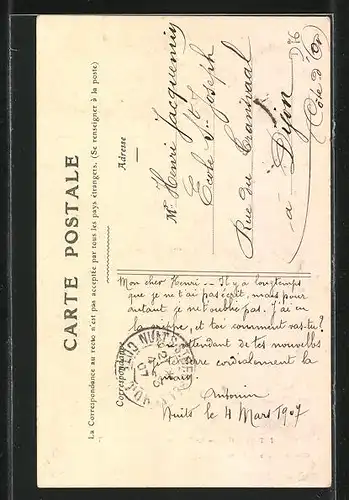 CARTE POSTALE
La Correspondance au recto n'est pas acceptée par tous les pays étrangers. (Se renseigner à la poste)
Correspondance
Adresse
Mr Henri Jacquemin
École St Joseph
Rue du Transvaal
à Dijon
(Côte-d'Or)
Mon cher Henri -- Il y a longtemps
que je ne t'ai pas écrit, mais pour
autant je ne t'oublie pas. J'ai eu
la grippe, et toi comment vas-tu?
En attendant de tes nouvelles
je te serre cordialement la
main.
Antonin
Nuits le 4 Mars 1907